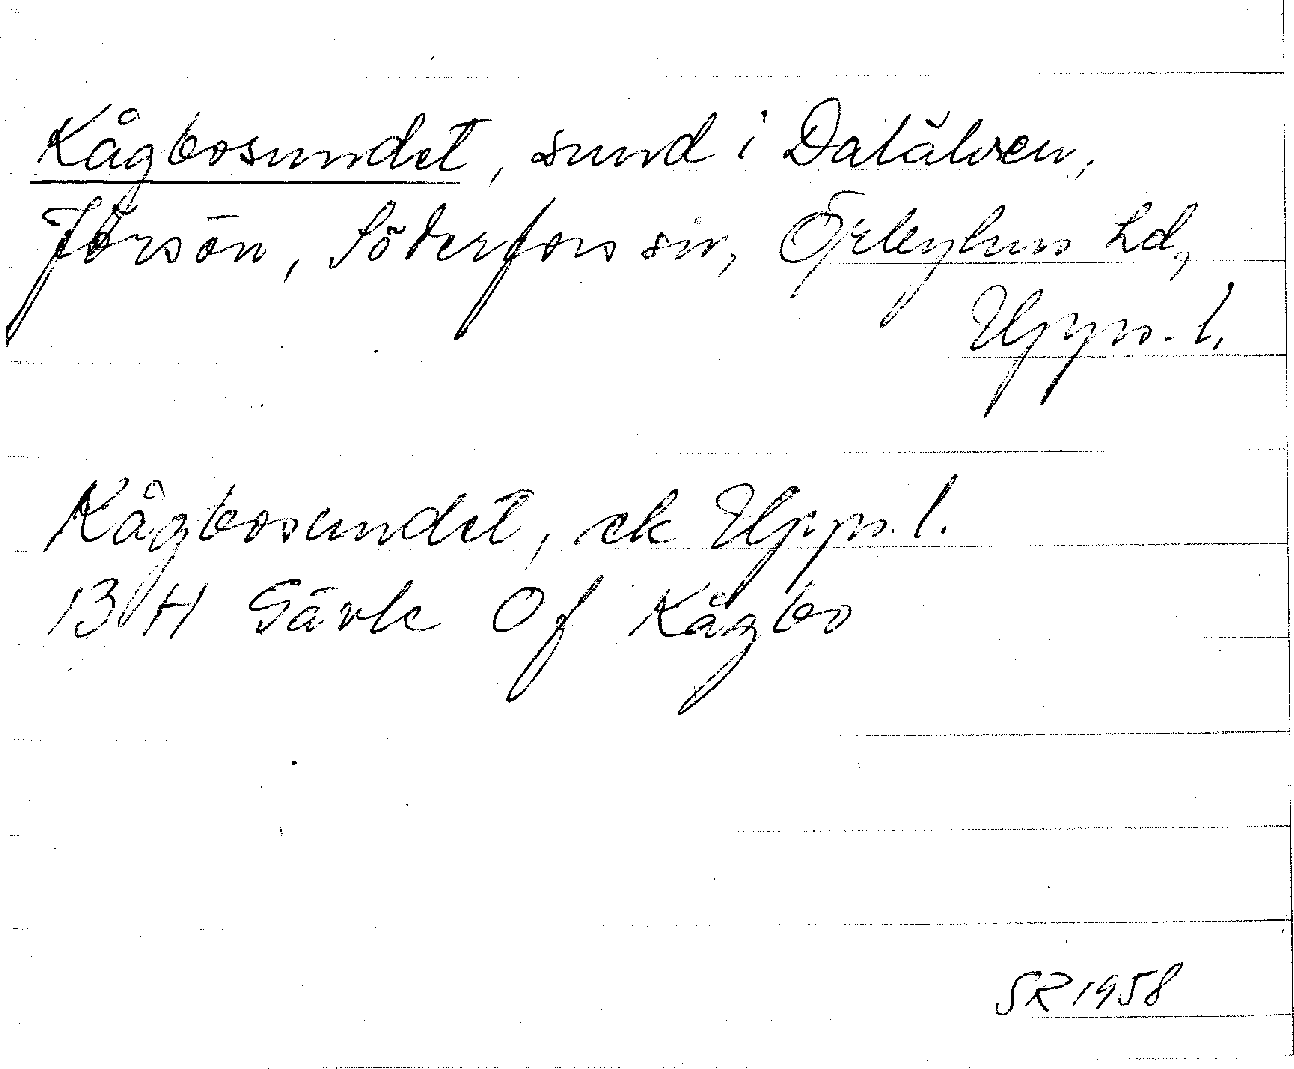 Kågbosundet, sund i Dalälven,
Jörsön, Söderfors sn, Örbyhus hd,
Upps. l.
Kågbosundet, ek Upps. l.
13 H Gävle Of Kågbo
SR 1958